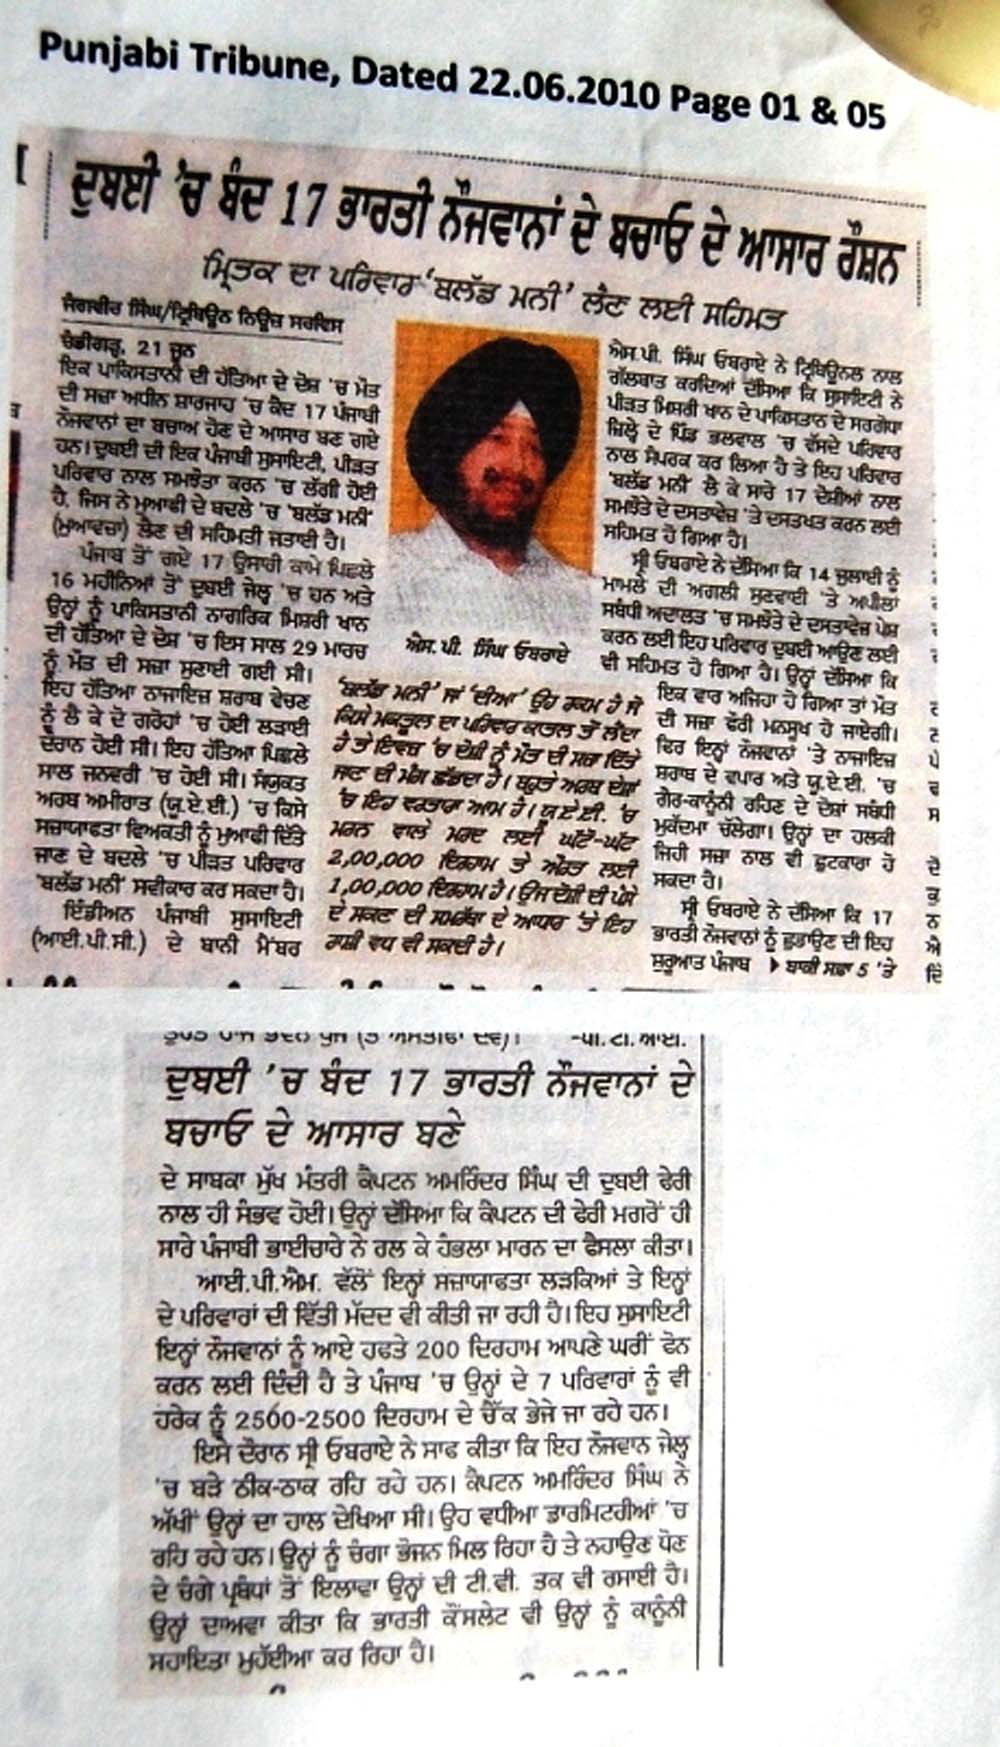 Punjabi Tribune, Dated 22.06.2010 Page 01 & 05
ਦੁਬਈ 'ਚ ਬੰਦ 17 ਭਾਰਤੀ ਨੌਜਵਾਨਾਂ ਦੇ ਬਚਾਓ ਦੇ ਆਸਾਰ ਰੌਸ਼ਨ
ਮ੍ਰਿਤਕ ਦਾ ਪਰਿਵਾਰ 'ਬਲੱਡ ਮਨੀ' ਲੈਣ ਲਈ ਸਹਿਮਤ
ਜਗਵੀਰ ਸਿੰਘ/ਟ੍ਰਿਬਿਊਨ ਨਿਊਜ਼ ਸਰਵਿਸ
ਚੰਡੀਗੜ੍ਹ, 21 ਜੂਨ
ਇਕ ਪਾਕਿਸਤਾਨੀ ਦੀ ਹੱਤਿਆ ਦੇ ਦੋਸ਼ 'ਚ ਮੌਤ
ਦੀ ਸਜ਼ਾ ਅਧੀਨ ਸ਼ਾਰਜਾਹ 'ਚ ਕੈਦ 17 ਪੰਜਾਬੀ
ਨੌਜਵਾਨਾਂ ਦਾ ਬਚਾਅ ਹੋਣ ਦੇ ਆਸਾਰ ਬਣ ਗਏ
ਹਨ। ਦੁਬਈ ਦੀ ਇਕ ਪੰਜਾਬੀ ਸੁਸਾਇਟੀ, ਪੀੜਤ
ਪਰਿਵਾਰ ਨਾਲ ਸਮਝੌਤਾ ਕਰਨ 'ਚ ਲੱਗੀ ਹੋਈ
ਹੈ, ਜਿਸ ਨੇ ਮੁਆਫੀ ਦੇ ਬਦਲੇ 'ਚ 'ਬਲੱਡ ਮਨੀ'
(ਮੁਆਵਜ਼ਾ) ਲੈਣ ਦੀ ਸਹਿਮਤੀ ਜਤਾਈ ਹੈ।
ਪੰਜਾਬ ਤੋਂ ਗਏ 17 ਉਸਾਰੀ ਕਾਮੇ ਪਿਛਲੇ
16 ਮਹੀਨਿਆਂ ਤੋਂ ਦੁਬਈ ਜੇਲ੍ਹ 'ਚ ਹਨ ਅਤੇ
ਉਨ੍ਹਾਂ ਨੂੰ ਪਾਕਿਸਤਾਨੀ ਨਾਗਰਿਕ ਮਿਸ਼ਰੀ ਖਾਨ
ਦੀ ਹੱਤਿਆ ਦੇ ਦੋਸ਼ 'ਚ ਇਸ ਸਾਲ 29 ਮਾਰਚ
ਨੂੰ ਮੌਤ ਦੀ ਸਜ਼ਾ ਸੁਣਾਈ ਗਈ ਸੀ।
ਇਹ ਹੱਤਿਆ ਨਾਜਾਇਜ਼ ਸ਼ਰਾਬ ਵੇਚਣ
ਨੂੰ ਲੈ ਕੇ ਦੋ ਗਰੋਹਾਂ 'ਚ ਹੋਈ ਲੜਾਈ
ਦੌਰਾਨ ਹੋਈ ਸੀ। ਇਹ ਹੱਤਿਆ ਪਿਛਲੇ
ਸਾਲ ਜਨਵਰੀ 'ਚ ਹੋਈ ਸੀ। ਸੰਯੁਕਤ
ਅਰਬ ਅਮੀਰਾਤ (ਯੂ.ਏ.ਈ.) 'ਚ ਕਿਸੇ
ਸਜ਼ਾਯਾਫਤਾ ਵਿਅਕਤੀ ਨੂੰ ਮੁਆਫੀ ਦਿੱਤੇ
ਜਾਣ ਦੇ ਬਦਲੇ 'ਚ ਪੀੜਤ ਪਰਿਵਾਰ
'ਬਲੱਡ ਮਨੀ' ਸਵੀਕਾਰ ਕਰ ਸਕਦਾ ਹੈ।
ਇੰਡੀਅਨ ਪੰਜਾਬੀ ਸੁਸਾਇਟੀ
(ਆਈ.ਪੀ.ਸੀ.) ਦੇ ਬਾਨੀ ਮੈਂਬਰ
ਐਸ.ਪੀ. ਸਿੰਘ ਓਬਰਾਏ
'ਬਲੱਡ ਮਨੀ' ਜਾਂ 'ਦੀਆ' ਉਹ ਰਕਮ ਹੈ ਜੋ
ਕਿਸੇ ਮਕਤੂਲ ਦਾ ਪਰਿਵਾਰ ਕਾਤਲ ਤੋਂ ਲੈਂਦਾ
ਹੈ ਤੇ ਇਵਜ਼ 'ਚ ਦੋਸ਼ੀ ਨੂੰ ਮੌਤ ਦੀ ਸਜ਼ਾ ਦਿੱਤੇ
ਜਾਣ ਦੀ ਮੰਗ ਛੱਡਦਾ ਹੈ। ਬਹੁਤੇ ਅਰਬ ਦੇਸ਼ਾਂ
'ਚ ਇਹ ਵਰਤਾਰਾ ਆਮ ਹੈ। ਯੂ.ਏ.ਈ. 'ਚ
ਮਰਨ ਵਾਲੇ ਮਰਦ ਲਈ ਘੱਟੋ-ਘੱਟ
2,00,000 ਦਿਰਹਾਮ ਤੇ ਔਰਤ ਲਈ
1,00,000 ਦਿਰਹਾਮ ਹੈ। ਉਂਜ ਦੋਸ਼ੀ ਦੀ ਪੈਸੇ
ਦੇ ਸਕਣ ਦੀ ਸਮਰੱਥਾ ਦੇ ਆਧਾਰ 'ਤੇ ਇਹ
ਰਾਸ਼ੀ ਵਧ ਵੀ ਸਕਦੀ ਹੈ।
ਐਸ.ਪੀ. ਸਿੰਘ ਓਬਰਾਏ ਨੇ ਟ੍ਰਿਬਿਊਨਲ ਨਾਲ
ਗੱਲਬਾਤ ਕਰਦਿਆਂ ਦੱਸਿਆ ਕਿ ਸੁਸਾਇਟੀ ਨੇ
ਪੀੜਤ ਮਿਸ਼ਰੀ ਖਾਨ ਦੇ ਪਾਕਿਸਤਾਨ ਦੇ ਸਰਗੋਧਾ
ਜ਼ਿਲ੍ਹੇ ਦੇ ਪਿੰਡ ਭਲਵਾਲ 'ਚ ਵੱਸਦੇ ਪਰਿਵਾਰ
ਨਾਲ ਸੰਪਰਕ ਕਰ ਲਿਆ ਹੈ ਤੇ ਇਹ ਪਰਿਵਾਰ
'ਬਲੱਡ ਮਨੀ' ਲੈ ਕੇ ਸਾਰੇ 17 ਦੋਸ਼ੀਆਂ ਨਾਲ
ਸਮਝੌਤੇ ਦੇ ਦਸਤਾਵੇਜ਼ 'ਤੇ ਦਸਤਖਤ ਕਰਨ ਲਈ
ਸਹਿਮਤ ਹੋ ਗਿਆ ਹੈ।
ਸ੍ਰੀ ਓਬਰਾਏ ਨੇ ਦੱਸਿਆ ਕਿ 14 ਜੁਲਾਈ ਨੂੰ
ਮਾਮਲੇ ਦੀ ਅਗਲੀ ਸੁਣਵਾਈ 'ਤੇ ਅਪੀਲਾਂ
ਸਬੰਧੀ ਅਦਾਲਤ 'ਚ ਸਮਝੌਤੇ ਦੇ ਦਸਤਾਵੇਜ਼ ਪੇਸ਼
ਕਰਨ ਲਈ ਇਹ ਪਰਿਵਾਰ ਦੁਬਈ ਆਉਣ ਲਈ
ਵੀ ਸਹਿਮਤ ਹੋ ਗਿਆ ਹੈ। ਉਨ੍ਹਾਂ ਦੱਸਿਆ ਕਿ
ਇਕ ਵਾਰ ਅਜਿਹਾ ਹੋ ਗਿਆ ਤਾਂ ਮੌਤ
ਦੀ ਸਜ਼ਾ ਫੌਰੀ ਮਨਸੂਖ ਹੋ ਜਾਏਗੀ।
ਫਿਰ ਇਨ੍ਹਾਂ ਨੌਜਵਾਨਾਂ 'ਤੇ ਨਾਜਾਇਜ਼
ਸ਼ਰਾਬ ਦੇ ਵਪਾਰ ਅਤੇ ਯੂ.ਏ.ਈ. 'ਚ
ਗੈਰ-ਕਾਨੂੰਨੀ ਰਹਿਣ ਦੇ ਦੋਸ਼ਾਂ ਸਬੰਧੀ
ਮੁਕੱਦਮਾ ਚੱਲੇਗਾ। ਉਨ੍ਹਾਂ ਦਾ ਹਲਕੀ
ਜਿਹੀ ਸਜ਼ਾ ਨਾਲ ਵੀ ਛੁਟਕਾਰਾ ਹੋ
ਸਕਦਾ ਹੈ।
ਸ੍ਰੀ ਓਬਰਾਏ ਨੇ ਦੱਸਿਆ ਕਿ 17
ਭਾਰਤੀ ਨੌਜਵਾਨਾਂ ਨੂੰ ਛੁਡਾਉਣ ਦੀ ਇਹ
ਸ਼ੁਰੂਆਤ ਪੰਜਾਬ ▶ ਬਾਕੀ ਸਫਾ 5 'ਤੇ
-ਪੀ.ਟੀ.ਆਈ.
ਦੁਬਈ 'ਚ ਬੰਦ 17 ਭਾਰਤੀ ਨੌਜਵਾਨਾਂ ਦੇ
ਬਚਾਓ ਦੇ ਆਸਾਰ ਬਣੇ
ਦੇ ਸਾਬਕਾ ਮੁੱਖ ਮੰਤਰੀ ਕੈਪਟਨ ਅਮਰਿੰਦਰ ਸਿੰਘ ਦੀ ਦੁਬਈ ਫੇਰੀ
ਨਾਲ ਹੀ ਸੰਭਵ ਹੋਈ। ਉਨ੍ਹਾਂ ਦੱਸਿਆ ਕਿ ਕੈਪਟਨ ਦੀ ਫੇਰੀ ਮਗਰੋਂ ਹੀ
ਸਾਰੇ ਪੰਜਾਬੀ ਭਾਈਚਾਰੇ ਨੇ ਰਲ ਕੇ ਹੰਭਲਾ ਮਾਰਨ ਦਾ ਫੈਸਲਾ ਕੀਤਾ।
ਆਈ.ਪੀ.ਐਮ. ਵੱਲੋਂ ਇਨ੍ਹਾਂ ਸਜ਼ਾਯਾਫਤਾ ਲੜਕਿਆਂ ਤੇ ਇਨ੍ਹਾਂ
ਦੇ ਪਰਿਵਾਰਾਂ ਦੀ ਵਿੱਤੀ ਮੱਦਦ ਵੀ ਕੀਤੀ ਜਾ ਰਹੀ ਹੈ। ਇਹ ਸੁਸਾਇਟੀ
ਇਨ੍ਹਾਂ ਨੌਜਵਾਨਾਂ ਨੂੰ ਆਏ ਹਫਤੇ 200 ਦਿਰਹਾਮ ਆਪਣੇ ਘਰੀਂ ਫੋਨ
ਕਰਨ ਲਈ ਦਿੰਦੀ ਹੈ ਤੇ ਪੰਜਾਬ 'ਚ ਉਨ੍ਹਾਂ ਦੇ 7 ਪਰਿਵਾਰਾਂ ਨੂੰ ਵੀ
ਹਰੇਕ ਨੂੰ 2500-2500 ਦਿਰਹਾਮ ਦੇ ਚੈੱਕ ਭੇਜੇ ਜਾ ਰਹੇ ਹਨ।
ਇਸੇ ਦੌਰਾਨ ਸ੍ਰੀ ਓਬਰਾਏ ਨੇ ਸਾਫ ਕੀਤਾ ਕਿ ਇਹ ਨੌਜਵਾਨ ਜੇਲ੍ਹ
'ਚ ਬੜੇ ਠੀਕ-ਠਾਕ ਰਹਿ ਰਹੇ ਹਨ। ਕੈਪਟਨ ਅਮਰਿੰਦਰ ਸਿੰਘ ਨੇ
ਅੱਖੀਂ ਉਨ੍ਹਾਂ ਦਾ ਹਾਲ ਦੇਖਿਆ ਸੀ। ਉਹ ਵਧੀਆ ਡਾਰਮਿਟਰੀਆਂ 'ਚ
ਰਹਿ ਰਹੇ ਹਨ। ਉਨ੍ਹਾਂ ਨੂੰ ਚੰਗਾ ਭੋਜਨ ਮਿਲ ਰਿਹਾ ਹੈ ਤੇ ਨਹਾਉਣ ਧੋਣ
ਦੇ ਚੰਗੇ ਪ੍ਰਬੰਧਾਂ ਤੋਂ ਇਲਾਵਾ ਉਨ੍ਹਾਂ ਦੀ ਟੀ.ਵੀ. ਤਕ ਵੀ ਰਸਾਈ ਹੈ।
ਉਨ੍ਹਾਂ ਦਾਅਵਾ ਕੀਤਾ ਕਿ ਭਾਰਤੀ ਕੌਂਸਲੇਟ ਵੀ ਉਨ੍ਹਾਂ ਨੂੰ ਕਾਨੂੰਨੀ
ਸਹਾਇਤਾ ਮੁਹੱਈਆ ਕਰ ਰਿਹਾ ਹੈ।